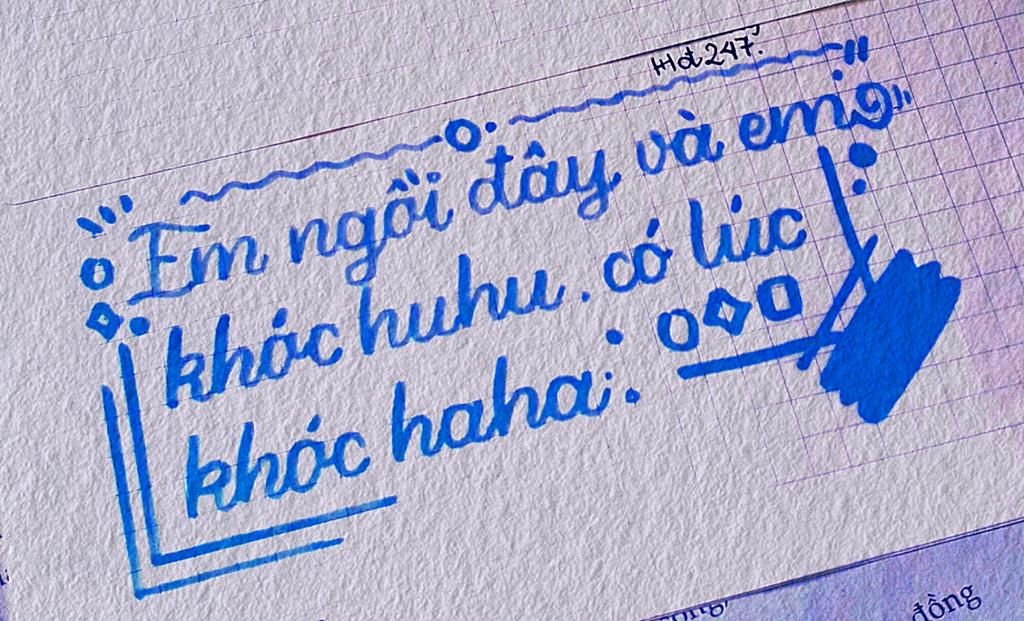 Hđ 247.
Em ngồi đây và em
khóc huhu. có lúc
khóc haha
đồng